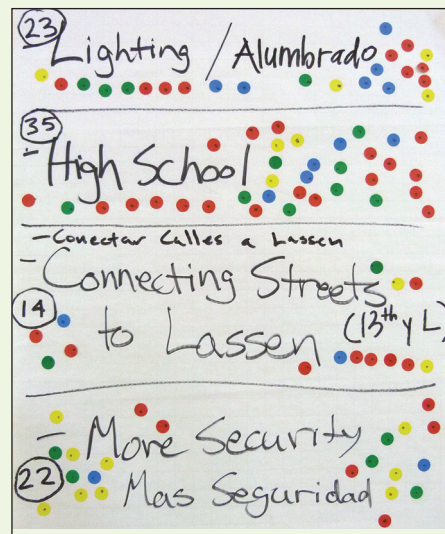 23
- Lighting / Alumbrado
35
- High School
- Conectar Calles a Lassen
- Connecting Streets
14 to Lassen (13th y L)
- More Security
22 Mas Seguridad